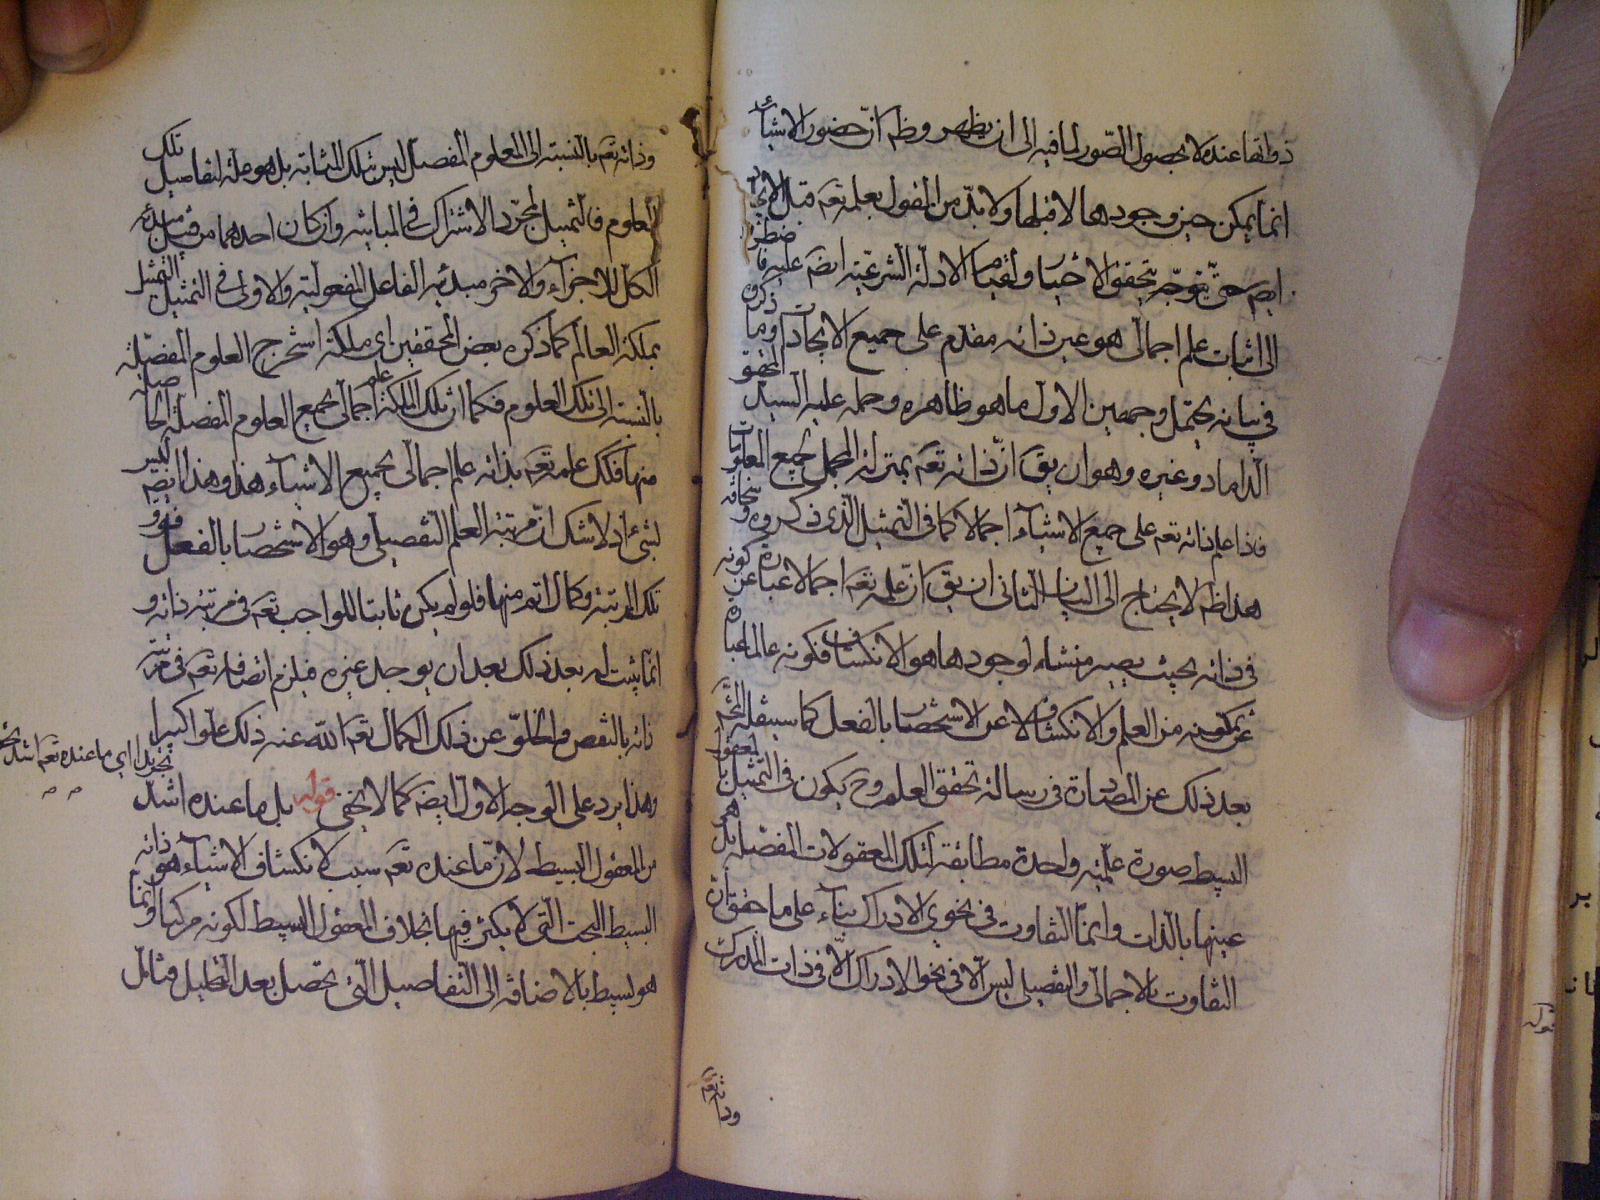 ذواتها عنده لا بحصول الصّور لما فيه الى ان يظهر وظم انّ حضور الاشيآء
انّما يمكن حين وجودها لا قبلها ولا بدّ من القول بعلمه تعم قبل الايجاد
ايضم حتى يتوجّه تحقق الاختيار ولقيام الادلّة الشرعيّة ايضم عليه فاضطرّ
الى اثبات علم اجمالى هو عين ذاته مقدّم على جميع الايجادات وما ذكره المحقق
فى بيانه يحتمل وجهين الاول ما هو ظاهره وحمله عليه السيد
الداماد وغيره وهو ان يق انّ ذاته تعم بمنزلة المجمل لجميع المعلومات
فاذا علم ذاته تعم علم جميع الاشيآء اجمالا كما فى التمثيل الّذى ذكروه وسخافة
هذا ظم لا يحتاج الى البيان الثانى ان يق انّ علمه تعم اجمالا عبارة عن كونه
فى ذاته بحيث يصير منشاء لوجود ما هو الانكشاف فكونه عالما عبارة
عن تمكنه من العلم والانكشاف لا عن الاستحضار بالفعل كما سينقله المحشّى
بعد ذلك عن المصّ تارة فى رسالة تحقق العلم وح يكون فى التمثيل المعقول
البسيط صورة علميّة واحدة مطابقة لتلك المعقولات المفصّلة بل هو
عينها بالذات وانّما التفاوت فى نحوى الادراك بنآء على ما حقق انّ
التفاوت بالاجمال والتفصيل ليس الّا فى نحو الادراك لا فى ذات المدرك
وذاته تعم
وذاته تعم بالنسبة الى المعلوم المفصل ليس بتلك المثابة بل هو علّة لتفاصيل تلك
العلوم فالتمثيل لمجرّد الاشتراك فى المباينة وان كان احدهما من قبيل مباينة
الكلّ للاجزآء والاخر مباينة الفاعل للمفعولية والاولى فى التمثيل التمثيل
بملكة العالم كما ذكره بعض المحققين اى ملكة استخرج العلوم المفصّلة
بالنسبة الى تلك العلوم فكما انّ تلك الملكة علم اجمالى بجميع العلوم المفصلة الحاصلة
منها فكك علمه تعم بذاته علم اجمالى بجميع الاشيآء هذا وهذا ايضم ليس
بشئ اذ لا شك انّ مرتبة العلم التفصيلى وهو الاستحضار بالفعل فوق
تلك المرتبة وكمال اتم منها فلو لم يكن ثابتا للواجب تعم فى مرتبة ذاته و
انّما يثبت له بعد ذلك بعد ان يوجد غيره فيلزم اتصافه تعم فى مرتبة
ذاته بالنقص والخلوّ عن ذلك الكمال تعم اللّه عنه ذلك علوا كبيرا
وهذا يرد على الوجه الاول ايضم كما لا يخفى قوله بل ما عنده اشدّ
تجريدا اى ما عنده تعم اشد
من المعقول البسيط لانّ ما عنده تعم سبب لانكشاف الاشيآء هو ذاته
البسيط البحت التى لا يكثر فيها بخلاف المعقول البسيط لكونه مركبا وانّما
هو بسيط بالاضافة الى التفاصيل التى تحصل بعد التحليل فتامّل